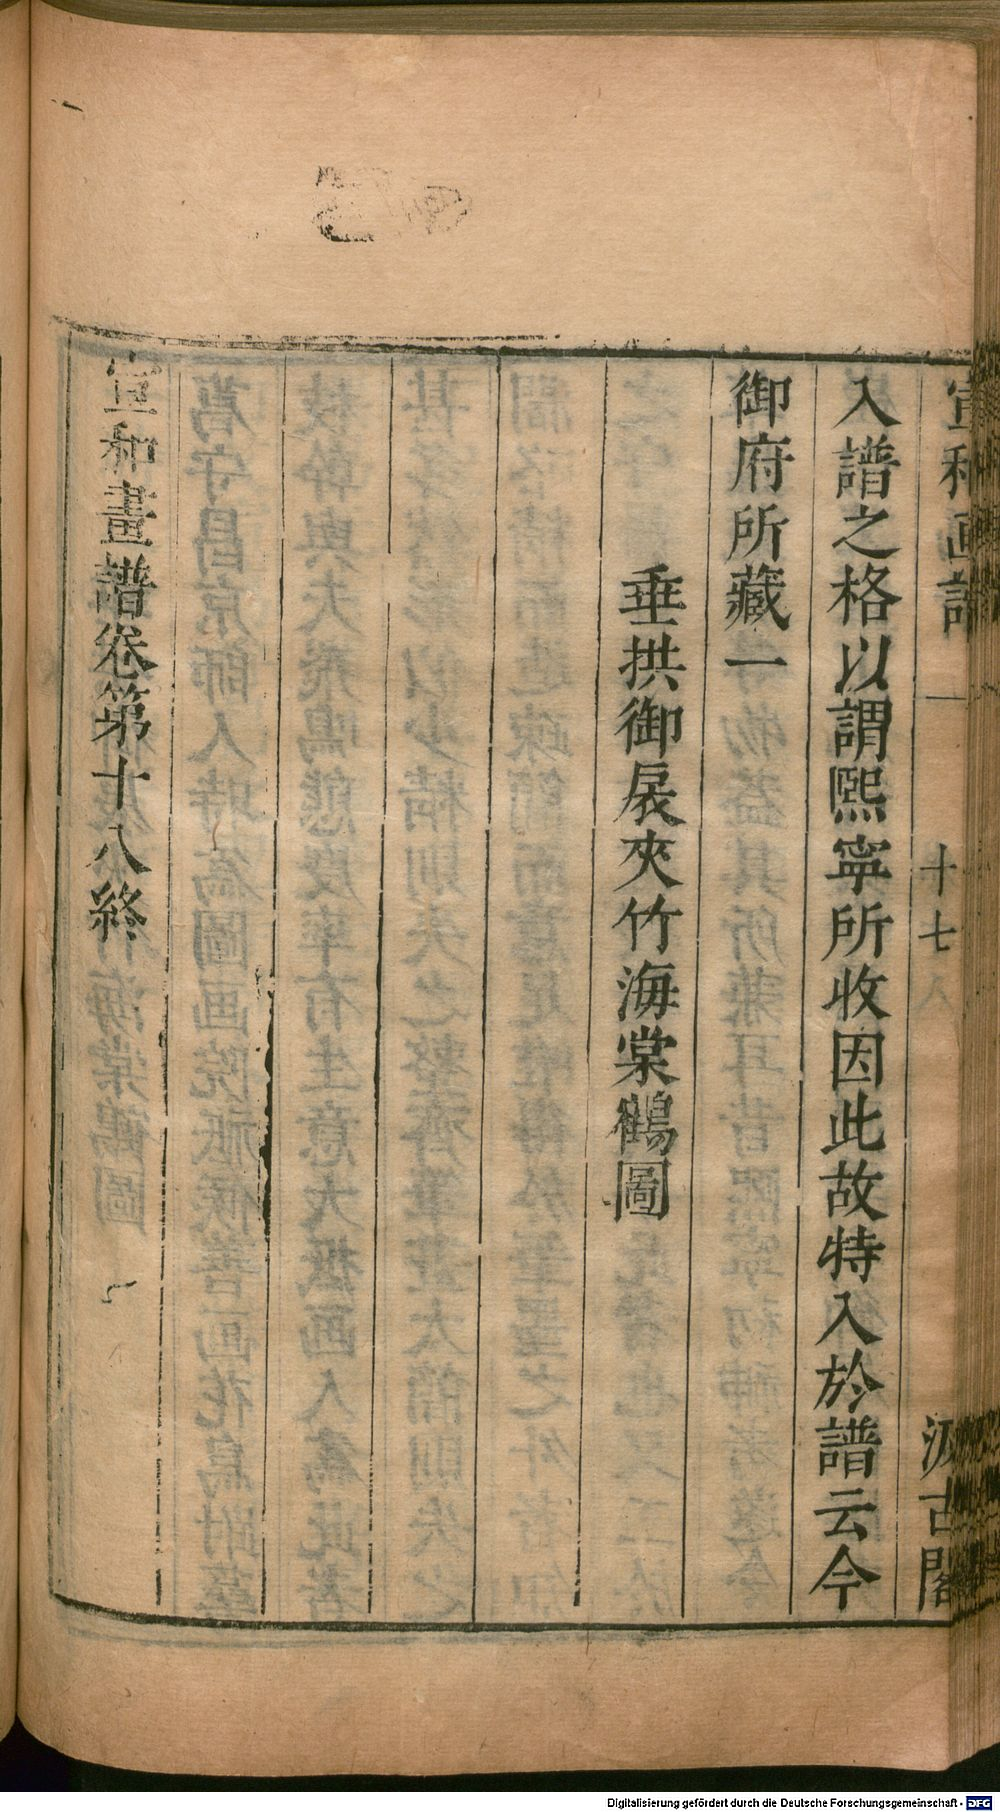 宣和画譜 十七 汲古閣
入譜之格以謂熙寧所收因此故特入於譜云今
御府所藏一
垂拱御扆夾竹海棠鶴圖
宣和畫譜卷第十八終
Digitalisierung gefördert durch die Deutsche Forschungsgemeinschaft - DFG